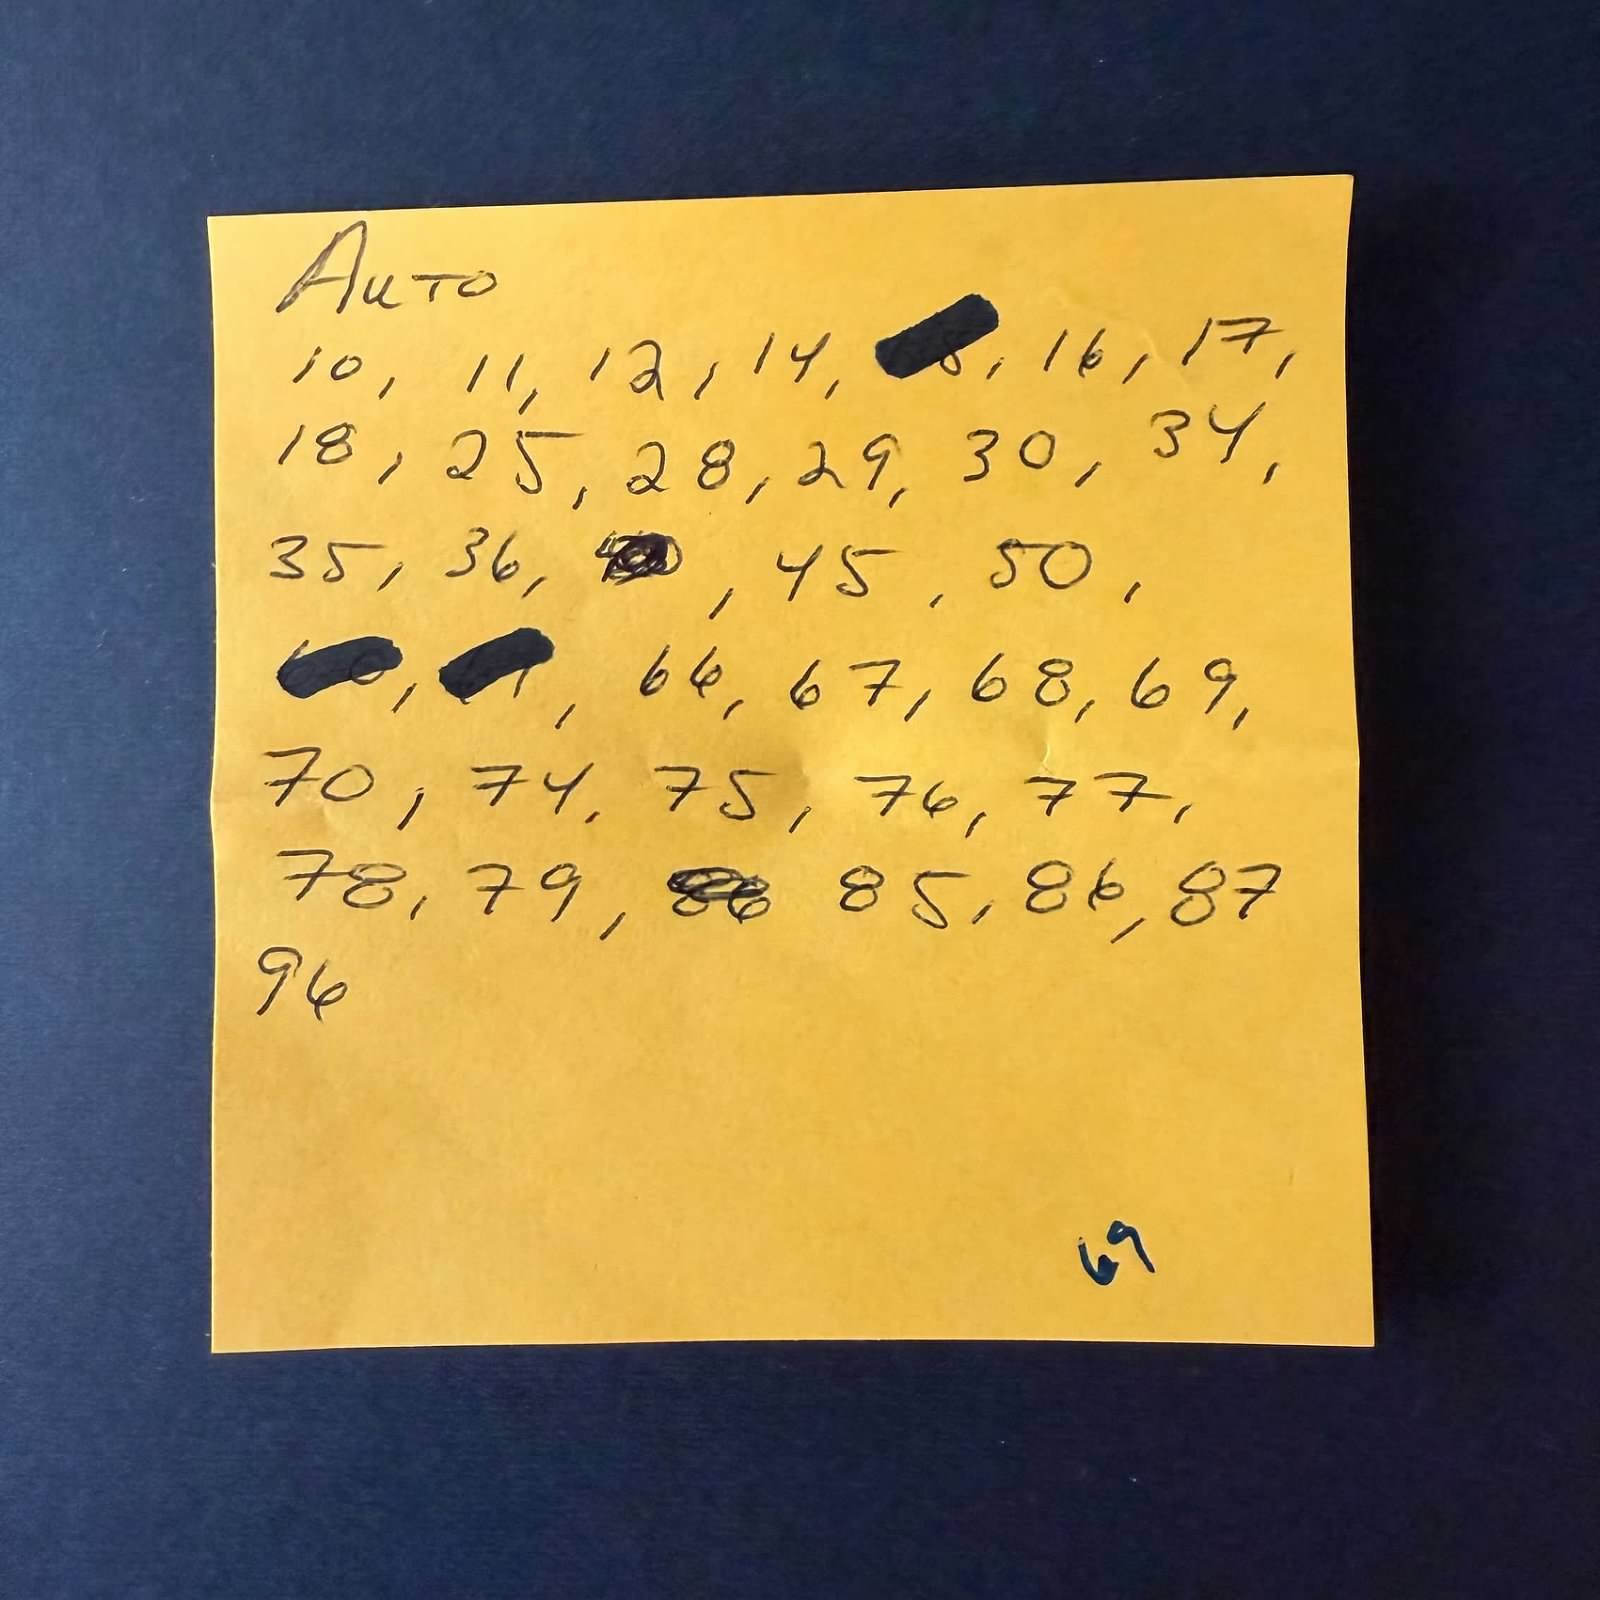 Auto
10, 11, 12, 14, , 16, 17,
18, 25, 28, 29, 30, 34,
35, 36, , 45, 50,
, , 66, 67, 68, 69,
70, 74, 75, 76, 77,
78, 79, 85, 86, 87
96
69